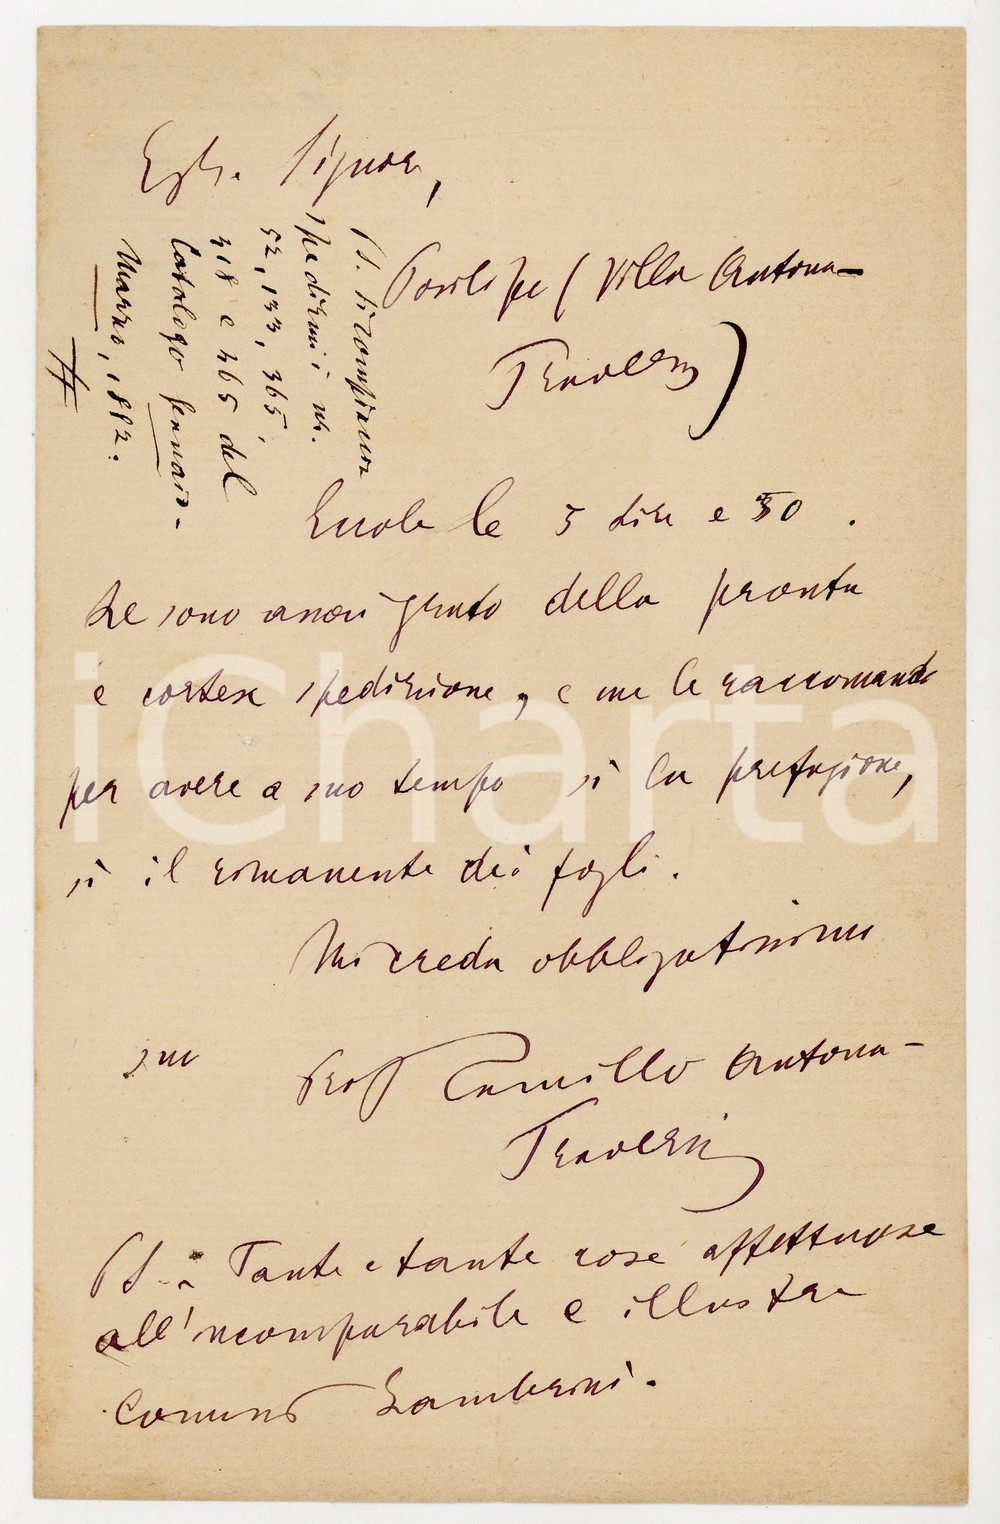 Egr. Signore,
Posilipo (Villa Antona-
Traversi)
PS. Si compiaccia
spedirmi i ni.
52, 133, 365,
418 e 465 del
Catalogo Gennaio-
Marzo, 1882.
Eccole le 5 lire e 50.
Le sono assai grato della pronta
e cortese spedizione, e me le raccomando
per avere a suo tempo sì la prefazione,
sì il rimanente dei fogli.
Mi creda obbligatissimo
suo Prof Camillo Antona-
Traversi
PS.: Tante e tante cose affettuose
all'incomparabile e illustre
Comm Zambrini.
iCharta